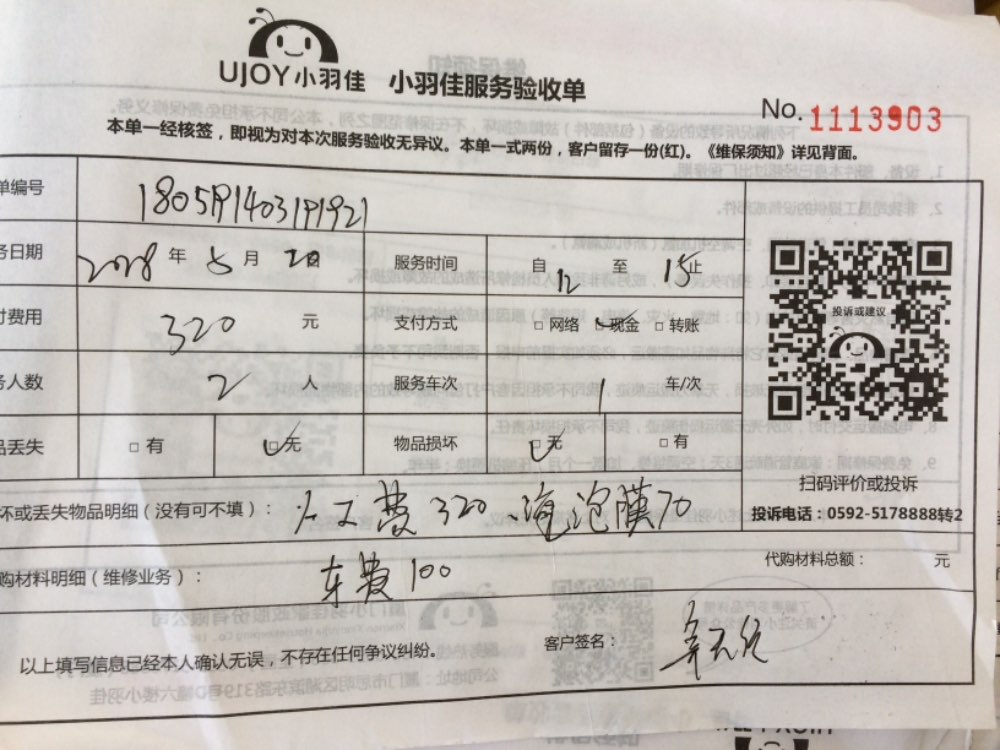 UJOY小羽佳 小羽佳服务验收单
No. 1113903
本单一经核签，即视为对本次服务验收无异议。本单一式两份，客户留存一份(红)。《维保须知》详见背面。
单编号
务日期 2018 年 5 月 20 服务时间 自 12 至 15 止
付费用 320 元 支付方式 □网络 ☑现金 □转账
务人数 2 人 服务车次 1 车/次
品丢失 □有 ☑无 物品损坏 ☑无 □有
投诉或建议
扫码评价或投诉
投诉电话：0592-5178888转2
坏或丢失物品明细（没有可不填）： 人工费 320 海泡膜70
购材料明细（维修业务）： 车费100
代购材料总额： 元
以上填写信息已经本人确认无误，不存在任何争议纠纷。
客户签名：